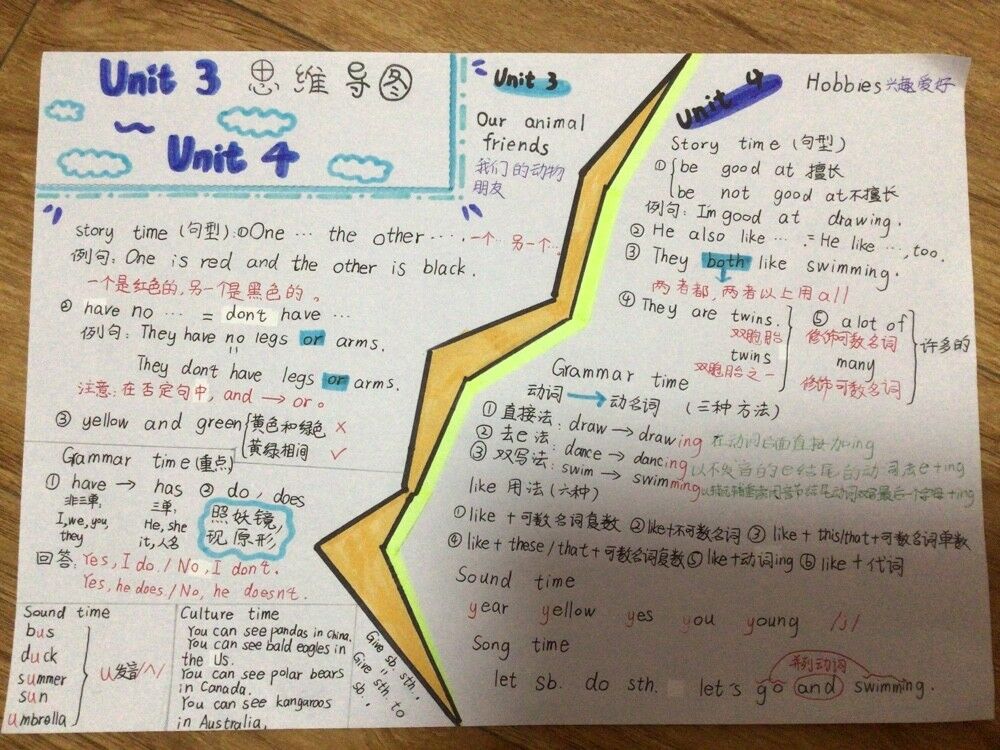 Unit 3 思维导图
~ Unit 4
story time (句型):①One … the other …. 一个… 另一个…
例句: One is red and the other is black.
一个是红色的,另一个是黑色的。
② have no … = don't have …
例句: They have no legs or arms.
They don't have legs or arms.
注意:在否定句中, and → or。
③ yellow and green
黄色和绿色 ×
黄绿相间 ✓
Grammar time (重点)
① have → has ② do, does
非三单: 三单:
I, we, you, He, she
they it, 人名
照妖镜,
现原形
回答: Yes, I do. / No, I don't.
Yes, he does. / No, he doesn't.
Sound time
bus
duck
summer
sun
umbrella
u发音/ʌ/
Culture time
You can see pandas in China.
You can see bald eagles in
the US.
You can see polar bears
in Canada.
You can see kangaroos
in Australia.
Give sb. sth.
=
Give sth. to
sb.
Unit 3
Our animal
friends
我们的动物
朋友
Unit 4
Hobbies兴趣爱好
Story time (句型)
① be good at 擅长
be not good at不擅长
例句: I'm good at drawing.
② He also like …. = He like …, too.
③ They both like swimming.
两者都,两者以上用all
④ They are twins.
双胞胎
twins
双胞胎之一
⑤ a lot of
修饰可数名词
many
修饰可数名词
许多的
Grammar time
动词 → 动名词 (三种方法)
① 直接法: draw → drawing 在动词后面直接加ing
② 去e法: dance → dancing 以不发音的e结尾的动词去e+ing
③ 双写法: swim → swimming
like 用法 (六种)
① like + 可数名词复数 ② like+不可数名词 ③ like + this/that+可数名词单数
④ like+ these / that + 可数名词复数 ⑤ like+动词ing ⑥ like + 代词
Sound time
year yellow yes you young /j/
Song time
并列动词
let sb. do sth. let's go and swimming.